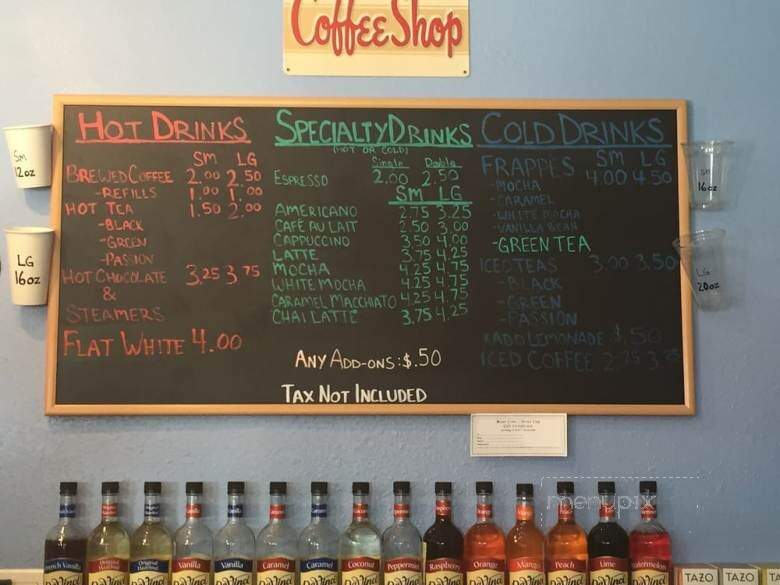 Coffee Shop
HOT DRINKS
SM LG
BREWED COFFEE 2.00 2.50
-REFILLS 1.00 1.00
HOT TEA 1.50 2.00
-BLACK
-GREEN
-PASSION
HOT CHOCOLATE 3.25 3.75
&
STEAMERS
FLAT WHITE 4.00
SPECIALTY DRINKS
(HOT OR COLD)
Single Double
ESPRESSO 2.00 2.50
SM LG
AMERICANO 2.75 3.25
CAFÉ AU LAIT 2.50 3.00
CAPPUCCINO 3.50 4.00
LATTE 3.75 4.25
MOCHA 4.25 4.75
WHITE MOCHA 4.25 4.75
CARAMEL MACCHIATO 4.25 4.75
CHAI LATTE 3.75 4.25
ANY ADD-ONS: $.50
TAX NOT INCLUDED
COLD DRINKS
SM LG
FRAPPES 4.00 4.50
-MOCHA
-CARAMEL
-WHITE MOCHA
-VANILLA BEAN
-GREEN TEA
ICED TEAS 3.00 3.50
-BLACK
-GREEN
-PASSION
*ADD LIMONADE $.50
ICED COFFEE 2.75
SM
12oz
LG
16oz
SM
16oz
LG
20oz
menupix
French Vanilla
Original
Hazelnut
Vanilla
Vanilla
Caramel
Caramel
Coconut
Peppermint
Raspberry
Orange
Mango
Peach
Lime
Watermelon
DaVinci
TAZO
TAZO